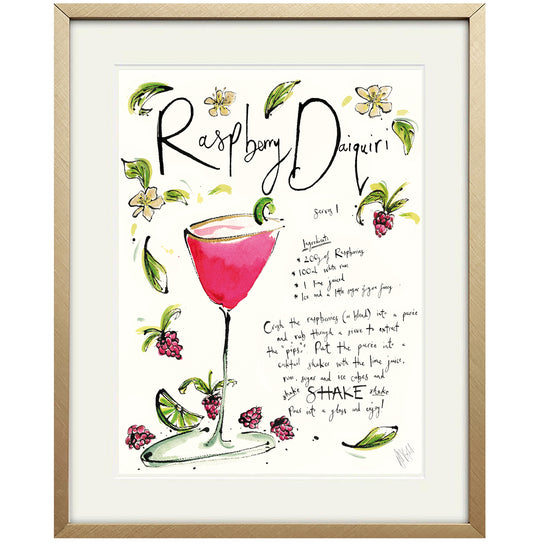 Raspberry Daiquiri
Serves 1
Ingredients
* 200g of Raspberries
* 100ml white rum
* 1 lime juiced
* Ice and a little sugar if you fancy.
Crush the raspberries (or blend) into a purée
and rub through a sieve to extract
the "pips." Put the purée into a
cocktail shaker with the lime juice,
rum, sugar and ice cubes and
shake SHAKE shake
Pour into a glass and enjoy!